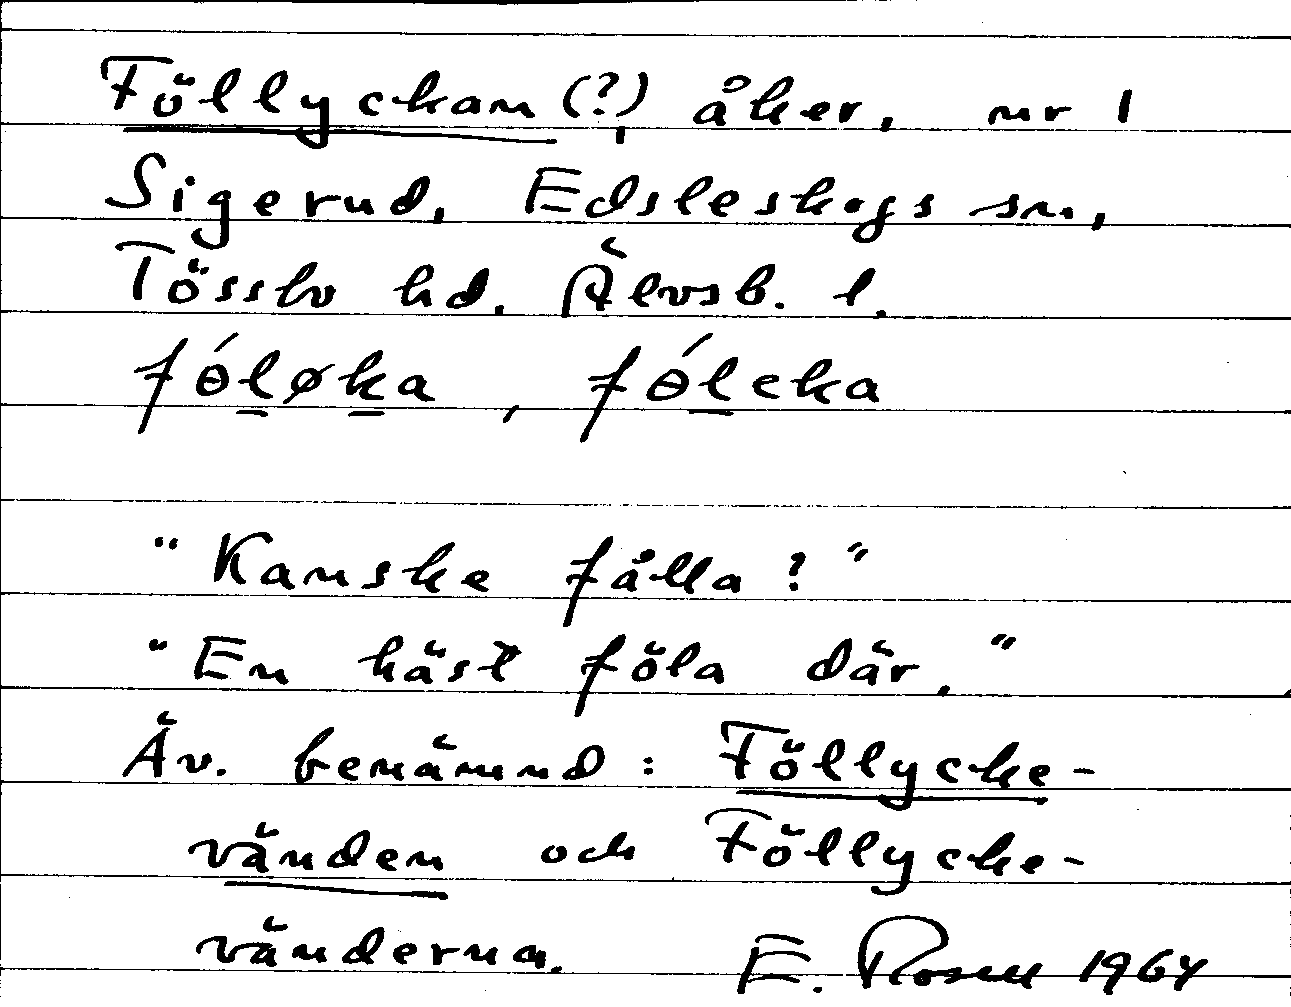 Föllyckan (?), åker, nr 1
Sigerud, Edsleskogs sn.,
Tössbo hd. Älvsb. l.
fө́løka, fө́lcka
"Kanske fålla?"
"En häst föla där."
Äv. benämnd: Föllycke-
vänden och Föllycke-
vänderna. E. Rosell 1964